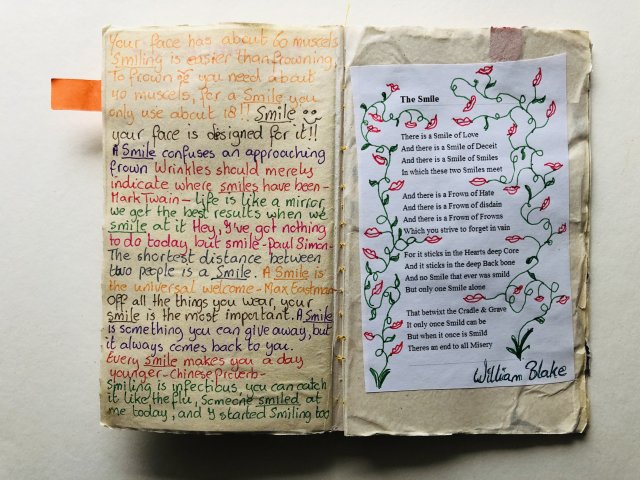 Your face has about 60 muscels
Smiling is easier than frowning,
to frown you need about
40 muscels, for a Smile you
only use about 18!! Smile
your face is designed for it!!
A Smile confuses an approaching
frown Wrinkles should merely
indicate where smiles have been-
Mark Twain- Life is like a mirror,
we get the best results when we
smile at it Hey, I've got nothing
to do today, but smile-Paul Simon-
The shortest distance between
two people is a Smile. A Smile is
the universal welcome-Max Eastman
Off all the things you wear, your
smile is the most important. A Smile
is something you can give away, but
it always comes back to you.
Every smile makes you a day
younger-Chinese Proverb-
Smiling is infectious, you can catch
it like the flu, Someone smiled at
me today, and I started Smiling too
The Smile
There is a Smile of Love
And there is a Smile of Deceit
And there is a Smile of Smiles
In which these two Smiles meet
And there is a Frown of Hate
And there is a Frown of disdain
And there is a Frown of Frowns
Which you strive to forget in vain
For it sticks in the Hearts deep Core
And it sticks in the deep Back bone
And no Smile that ever was smild
But only one Smile alone
That betwixt the Cradle & Grave
It only once Smild can be
But when it once is Smild
Theres an end to all Misery
William Blake